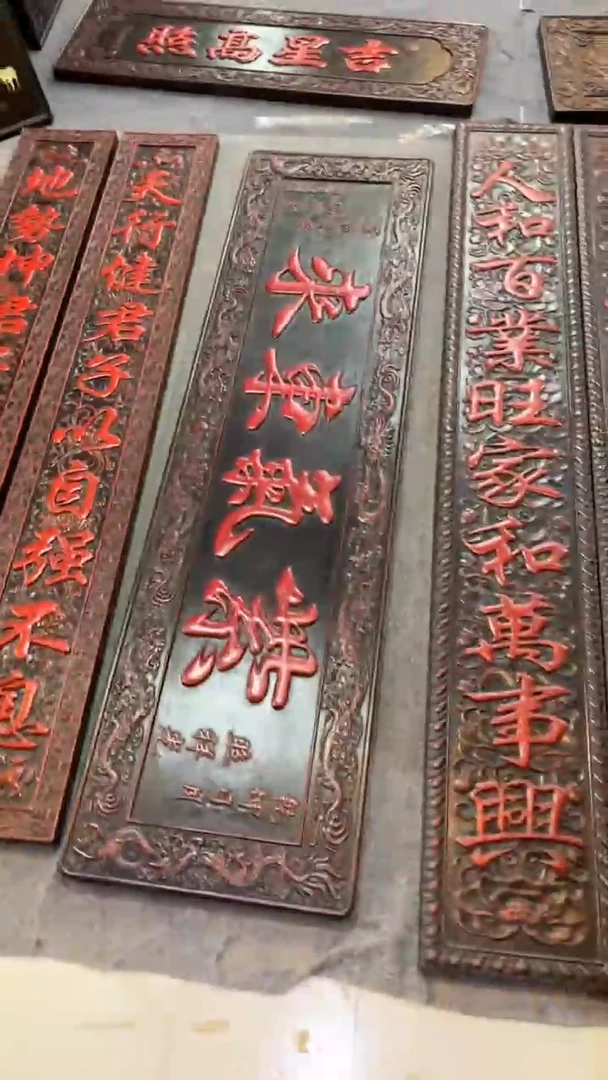 吉星髙照
地勢坤君
天行健君子以自强不息
紫氣東來
人和百業旺家和萬事興